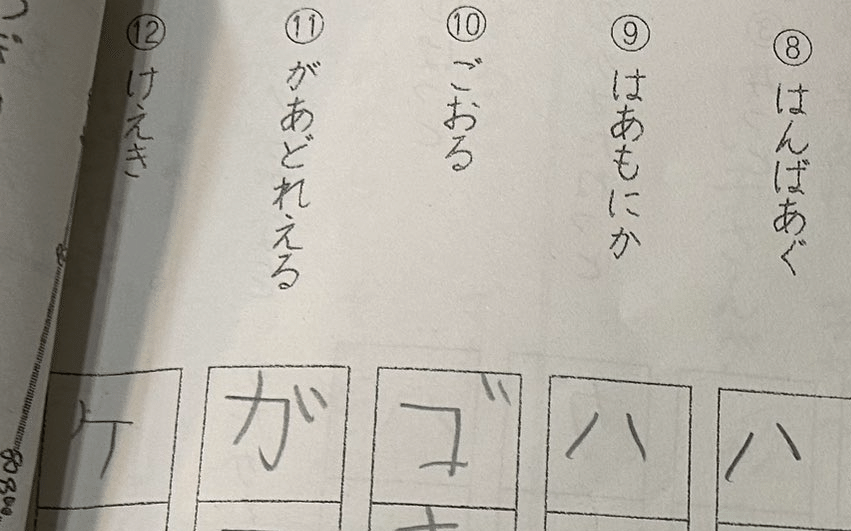 ⑧ はんばあぐ
⑨ はあもにか
⑩ ごおる
⑪ があどれえる
⑫ けえき
ハ
ハ
ゴ
ガ
ケ